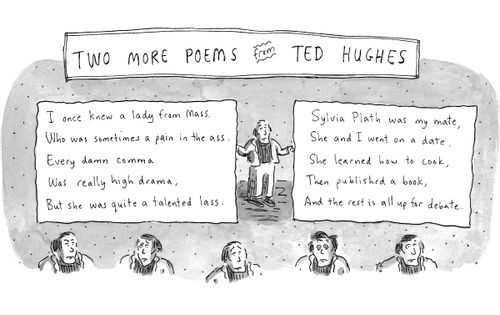 TWO MORE POEMS from TED HUGHES
I once knew a lady from Mass.
Who was sometimes a pain in the ass.
Every damn comma
Was really high drama,
But she was quite a talented lass.
Sylvia Plath was my mate,
She and I went on a date.
She learned how to cook,
Then published a book,
And the rest is all up for debate.